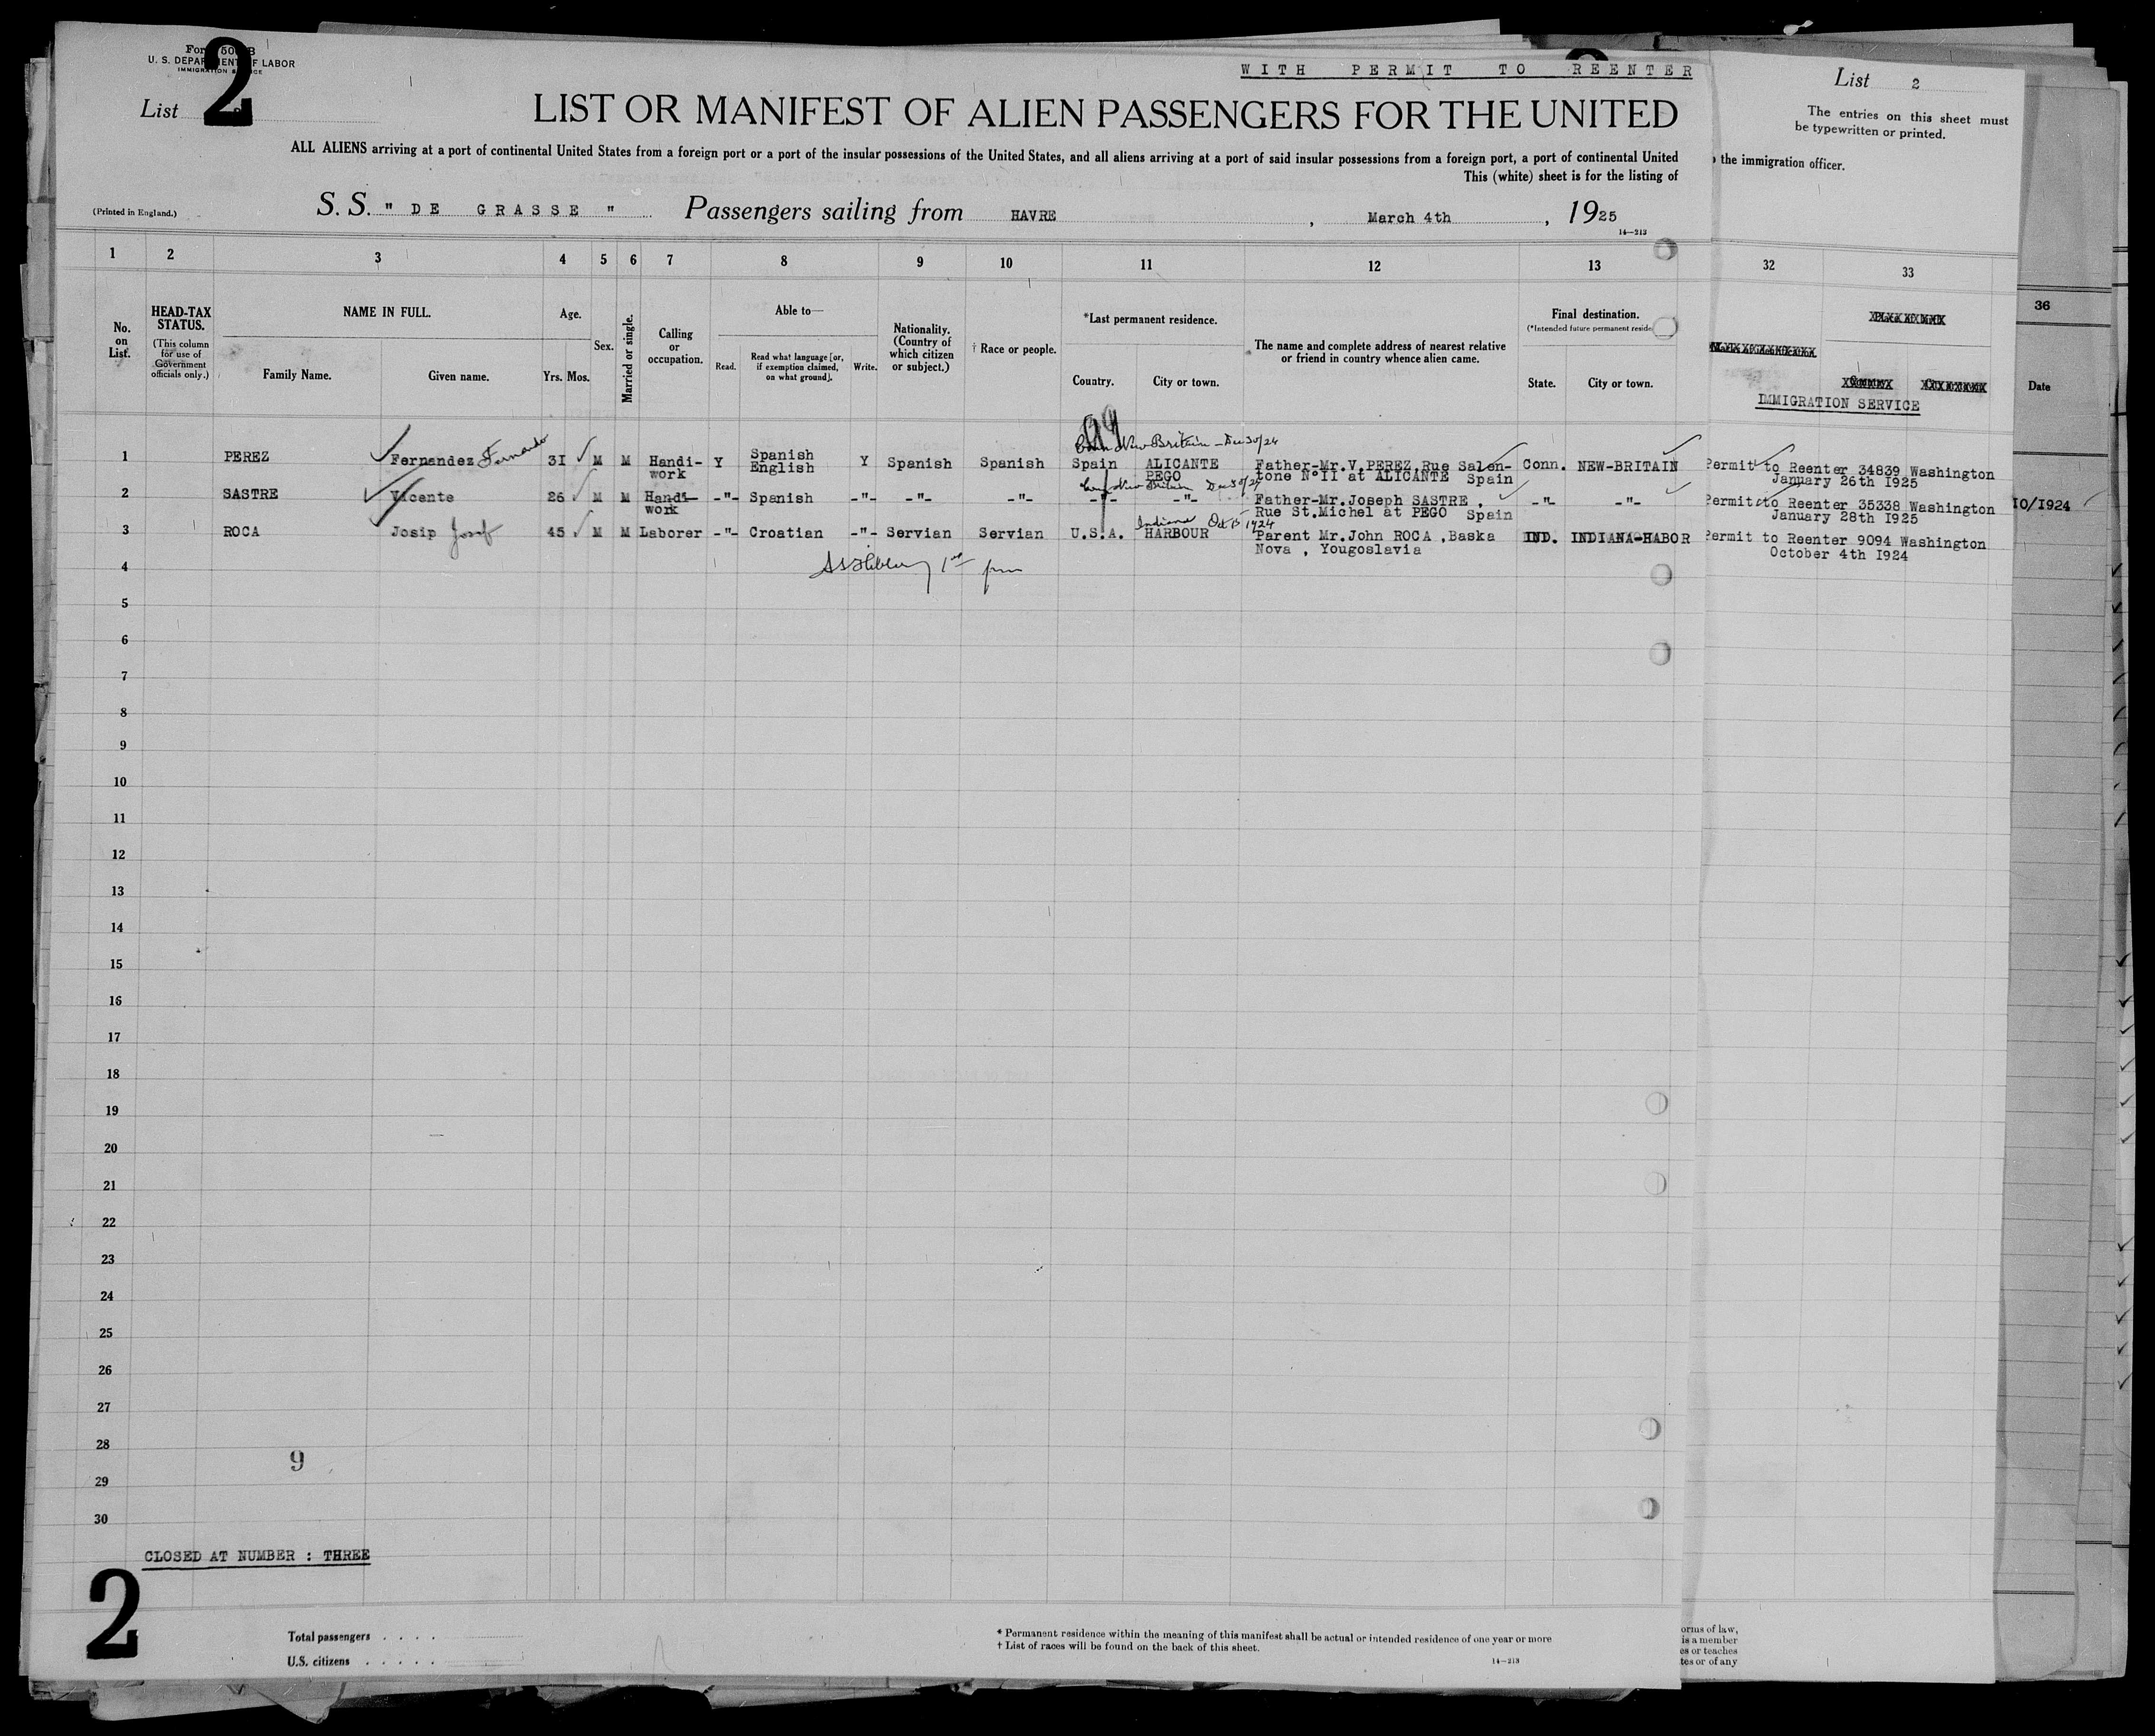 Form 500 B
U. S. DEPARTMENT OF LABOR
IMMIGRATION SERVICE
List 2
2
WITH PERMIT TO REENTER
LIST OR MANIFEST OF ALIEN PASSENGERS FOR THE UNITED
ALL ALIENS arriving at a port of continental United States from a foreign port or a port of the insular possessions of the United States, and all aliens arriving at a port of said insular possessions from a foreign port, a port of continental United
This (white) sheet is for the listing of
(Printed in England.)
S. S. " DE GRASSE " Passengers sailing from HAVRE , March 4th , 1925
14—213
List 2
The entries on this sheet must
be typewritten or printed.
the immigration officer.
1 2 3 4 5 6 7 8 9 10 11 12 13 32 33 36
No. on List.
HEAD-TAX STATUS.
(This column for use of Government officials only.)
NAME IN FULL.
Family Name. Given name.
Age.
Yrs. Mos.
Sex.
Married or single.
Calling or occupation.
Able to—
Read. Read what language [or, if exemption claimed, on what ground]. Write.
Nationality. (Country of which citizen or subject.)
† Race or people.
*Last permanent residence.
Country. City or town.
The name and complete address of nearest relative or friend in country whence alien came.
Final destination.
(*Intended future permanent reside
State. City or town.
IMMIGRATION SERVICE
Date
New Britain - Dec 30/24
1 PEREZ Fernandez Fernando 31 M M Handi-work Y Spanish English Y Spanish Spanish Spain ALICANTE PEGO Father-Mr.V.PEREZ,Rue Salen-tone N°II at ALICANTE Spain Conn. NEW-BRITAIN Permit to Reenter 34839 Washington January 26th I925
New Britain Dec 30/24
2 SASTRE Vicente 26 M M Handi-work -"- Spanish -"- -"- -"- -"- -"- Father-Mr.Joseph SASTRE , Rue St.Michel at PEGO Spain -"- -"- Permit to Reenter 35338 Washington January 28th I925 IO/I924
Indiana Oct 15 1924
3 ROCA Josip Josef 45 M M Laborer -"- Croatian -"- Servian Servian U.S.A. HARBOUR Parent Mr.John ROCA ,Baska Nova , Yougoslavia IND. INDIANA-HABOR Permit to Reenter 9094 Washington October 4th I924
4
5
6
7
8
9
10
11
12
13
14
15
16
17
18
19
20
21
22
23
24
25
26
27
28
9
29
30
CLOSED AT NUMBER : THREE
2
Total passengers . . . .
U.S. citizens . . . . .
* Permanent residence within the meaning of this manifest shall be actual or intended residence of one year or more
† List of races will be found on the back of this sheet.
14—213
orms of law,
is a member
es or teaches
tes or of any